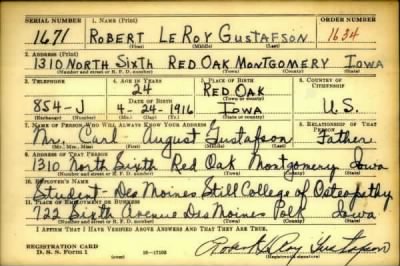 SERIAL NUMBER 1. NAME (Print) ORDER NUMBER
1671 ROBERT LEROY GUSTAFSON 1634
(First) (Middle) (Last)
2. ADDRESS (Print)
1310 NORTH SIXTH RED OAK MONTGOMERY IOWA
(Number and street or R. F. D. number) (Town) (County) (State)
3. TELEPHONE 4. AGE IN YEARS 5. PLACE OF BIRTH 6. COUNTRY OF CITIZENSHIP
24 RED OAK
DATE OF BIRTH (Town or county)
854-J 4-24-1916 IOWA U.S.
(Exchange) (Number) (Mo.) (Day) (Yr.) (State or country)
7. NAME OF PERSON WHO WILL ALWAYS KNOW YOUR ADDRESS 8. RELATIONSHIP OF THAT PERSON
Mr. Carl August Gustafson Father
(Mr., Mrs., Miss) (First) (Middle) (Last)
9. ADDRESS OF THAT PERSON
1310 North Sixth Red Oak Montgomery Iowa
(Number and street or R. F. D. number) (Town) (County) (State)
10. EMPLOYER'S NAME
Student - Des Moines Still College of Osteopathy
11. PLACE OF EMPLOYMENT OR BUSINESS
722 Sixth Avenue Des Moines Polk Iowa
(Number and street or R. F. D. number) (Town) (County) (State)
I AFFIRM THAT I HAVE VERIFIED ABOVE ANSWERS AND THAT THEY ARE TRUE.
REGISTRATION CARD
D. S. S. Form 1 16-17105 Robert LeRoy Gustafson
(Registrant's signature)